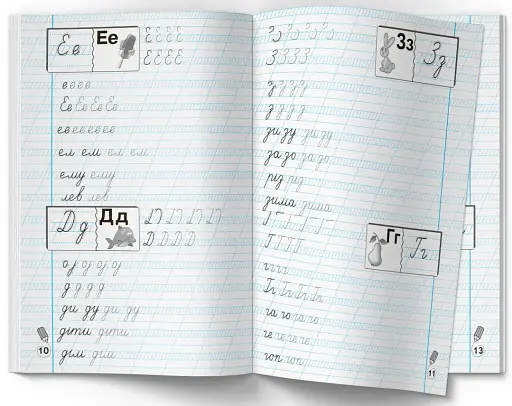 Е е Ее Е Е Е Е
Е Е Е Е
е е е е
Ее Ее Ее Ее
ее ее ее ее
ел ем ел ем
ему ему
лев лев
Д д Дд
Д Д Д Д
д д д д
ди ду ди ду
діти діти
дім дім
10
З З З З З Зз З з
З З З З
з з з з
з з з з
зи зу зи зу
за зо за зо
різ різ
зима зима
Г Г Г Г Г Гг Г г
Г Г Г Г
г г г г
Гг Гг Гг Гг
га го га го
ге ге ге ге
гоп гоп
11
13